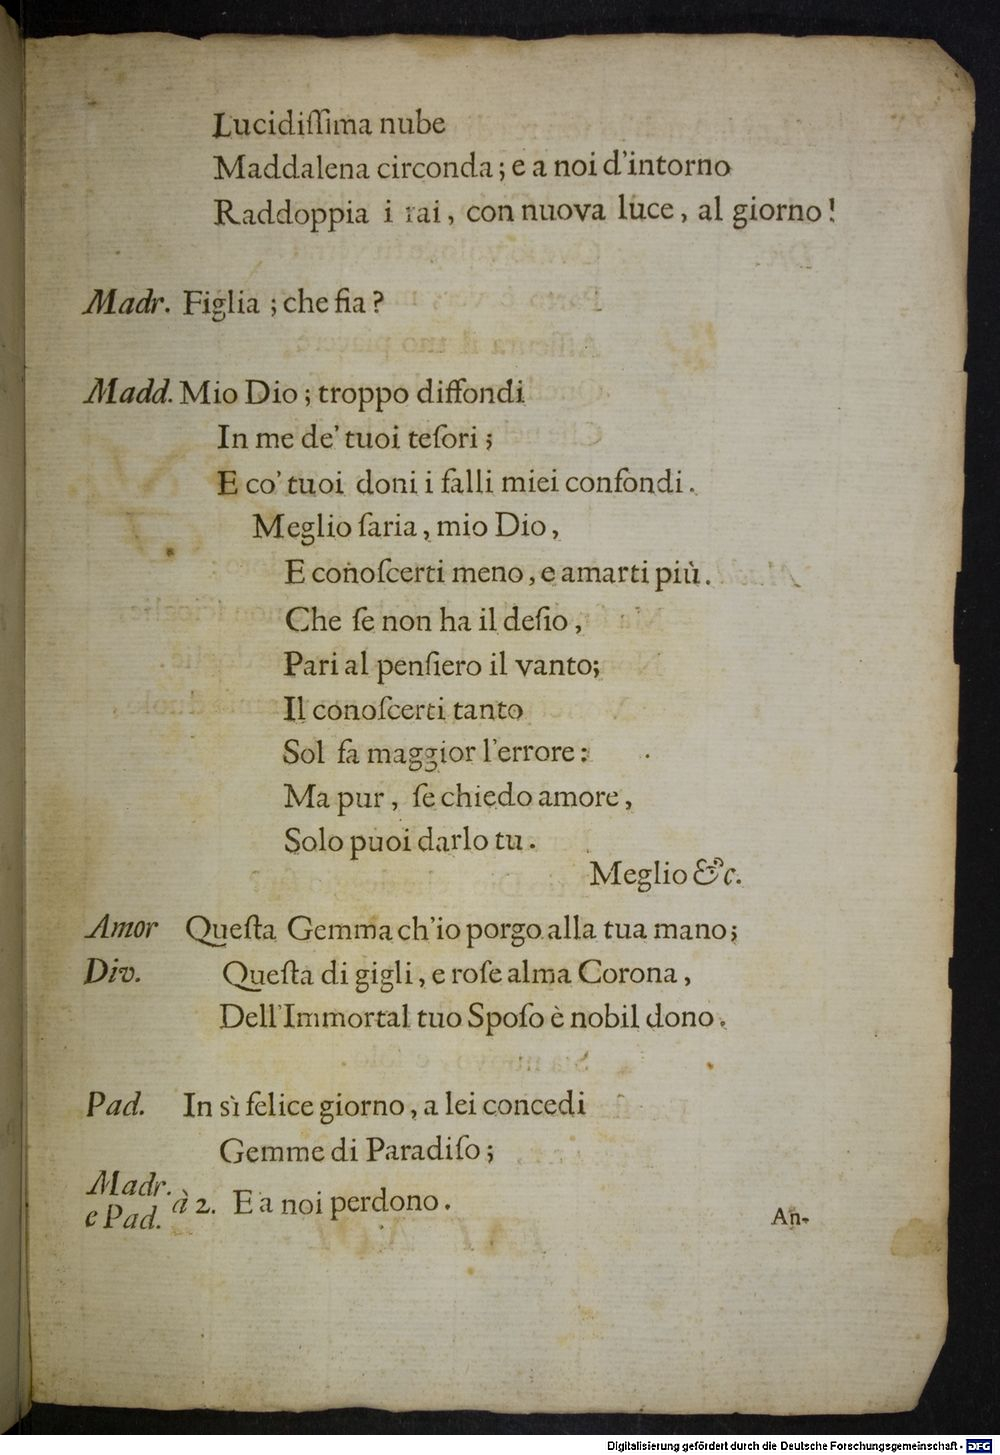 Lucidiſſima nube
Maddalena circonda; e a noi d'intorno
Raddoppia i rai, con nuova luce, al giorno!
Madr. Figlia; che fia?
Madd. Mio Dio; troppo diffondi
In me de' tuoi teſori;
E co' tuoi doni i falli miei confondi.
Meglio ſaria, mio Dio,
E conoſcerti meno, e amarti più.
Che ſe non ha il deſio,
Pari al penſiero il vanto;
Il conoſcerti tanto
Sol fa maggior l'errore:
Ma pur, ſe chiedo amore,
Solo puoi darlo tu.
Meglio &c.
Amor Queſta Gemma ch'io porgo alla tua mano;
Div. Queſta di gigli, e roſe alma Corona,
Dell'Immortal tuo Spoſo è nobil dono.
Pad. In sì felice giorno, a lei concedi
Gemme di Paradiſo;
Madr. e Pad. à 2. E a noi perdono.
An-
Digitalisierung gefördert durch die Deutsche Forschungsgemeinschaft - DFG